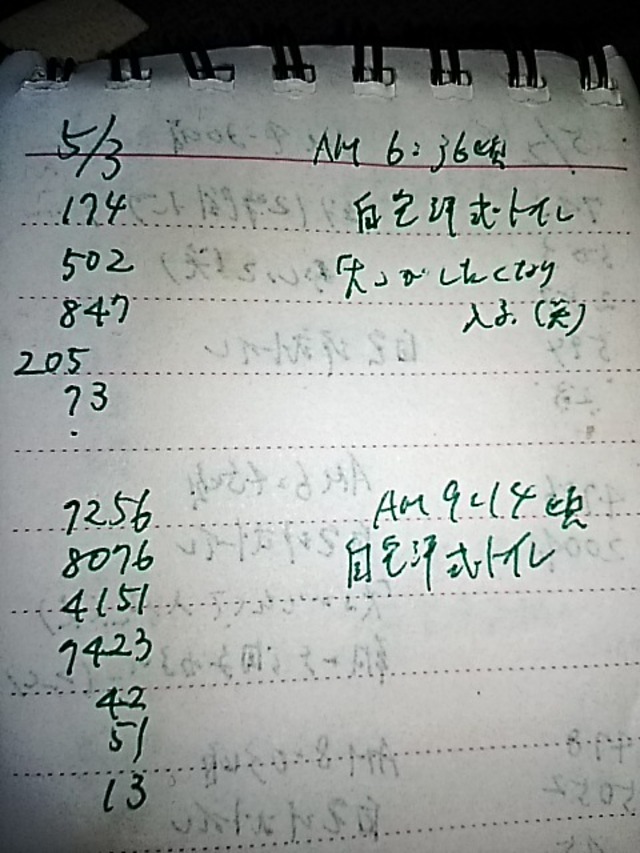 5/3 AM 6:36頃
174 自宅洋式トイレ
502 「大」がしたくなり
847 入る。(笑)
205
73
7256 AM 9:14頃
8076 自宅洋式トイレ
4151
7423
42
51
13